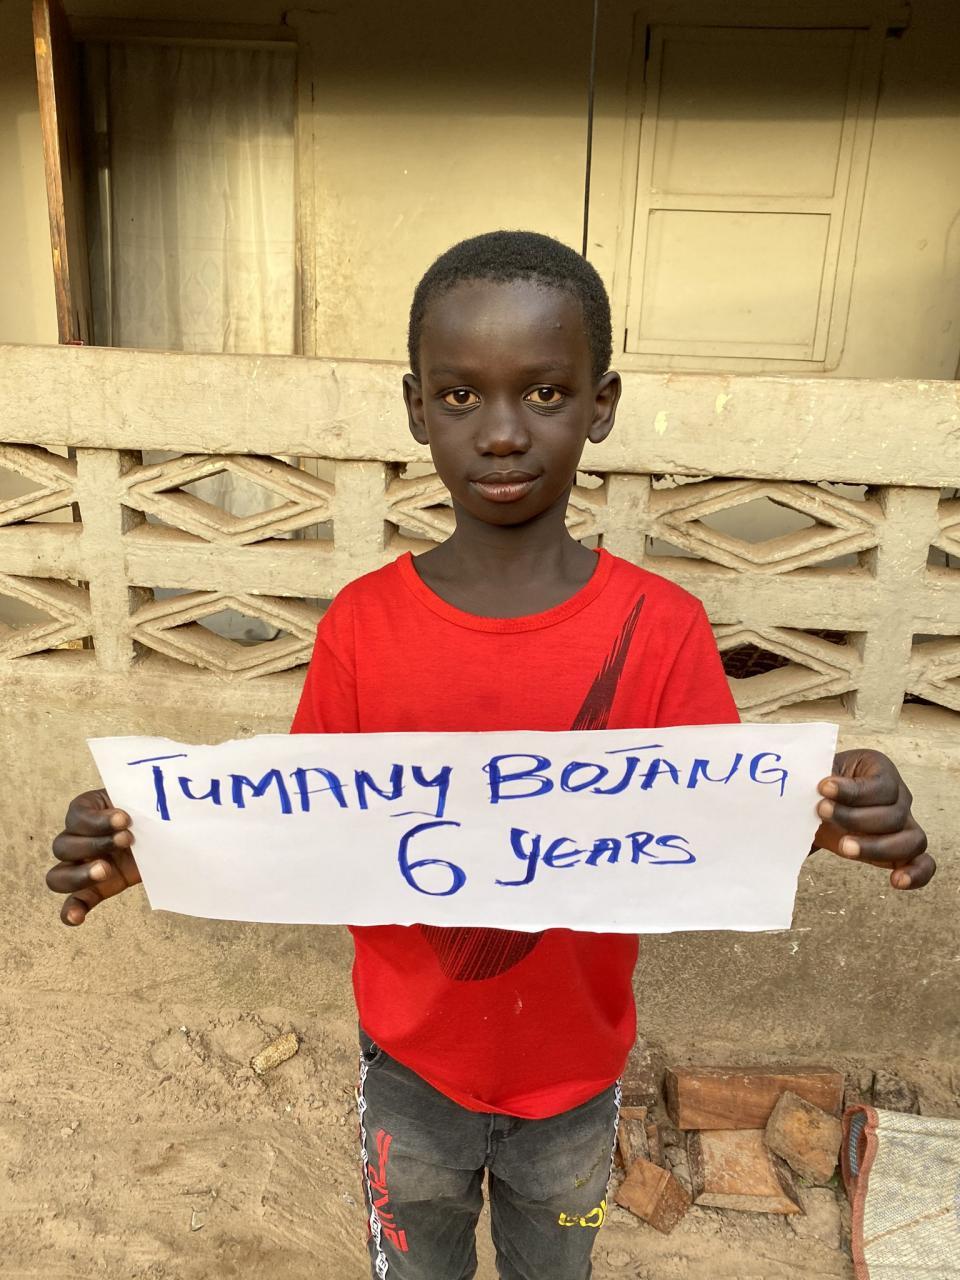 TUMANY BOJANG
6 YEARS